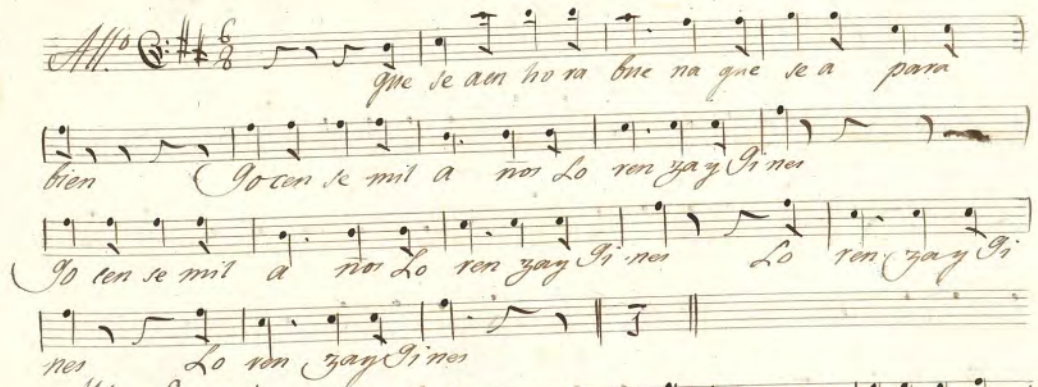 All.º 6 8
que se aen ho ra bue na que se a para
bien Gocen se mil a nos Lo ren zay Gi nes
Go cen se mil a nos Lo ren zay Gi nes Lo ren zay Gi
nes Lo ren zay Gi nes